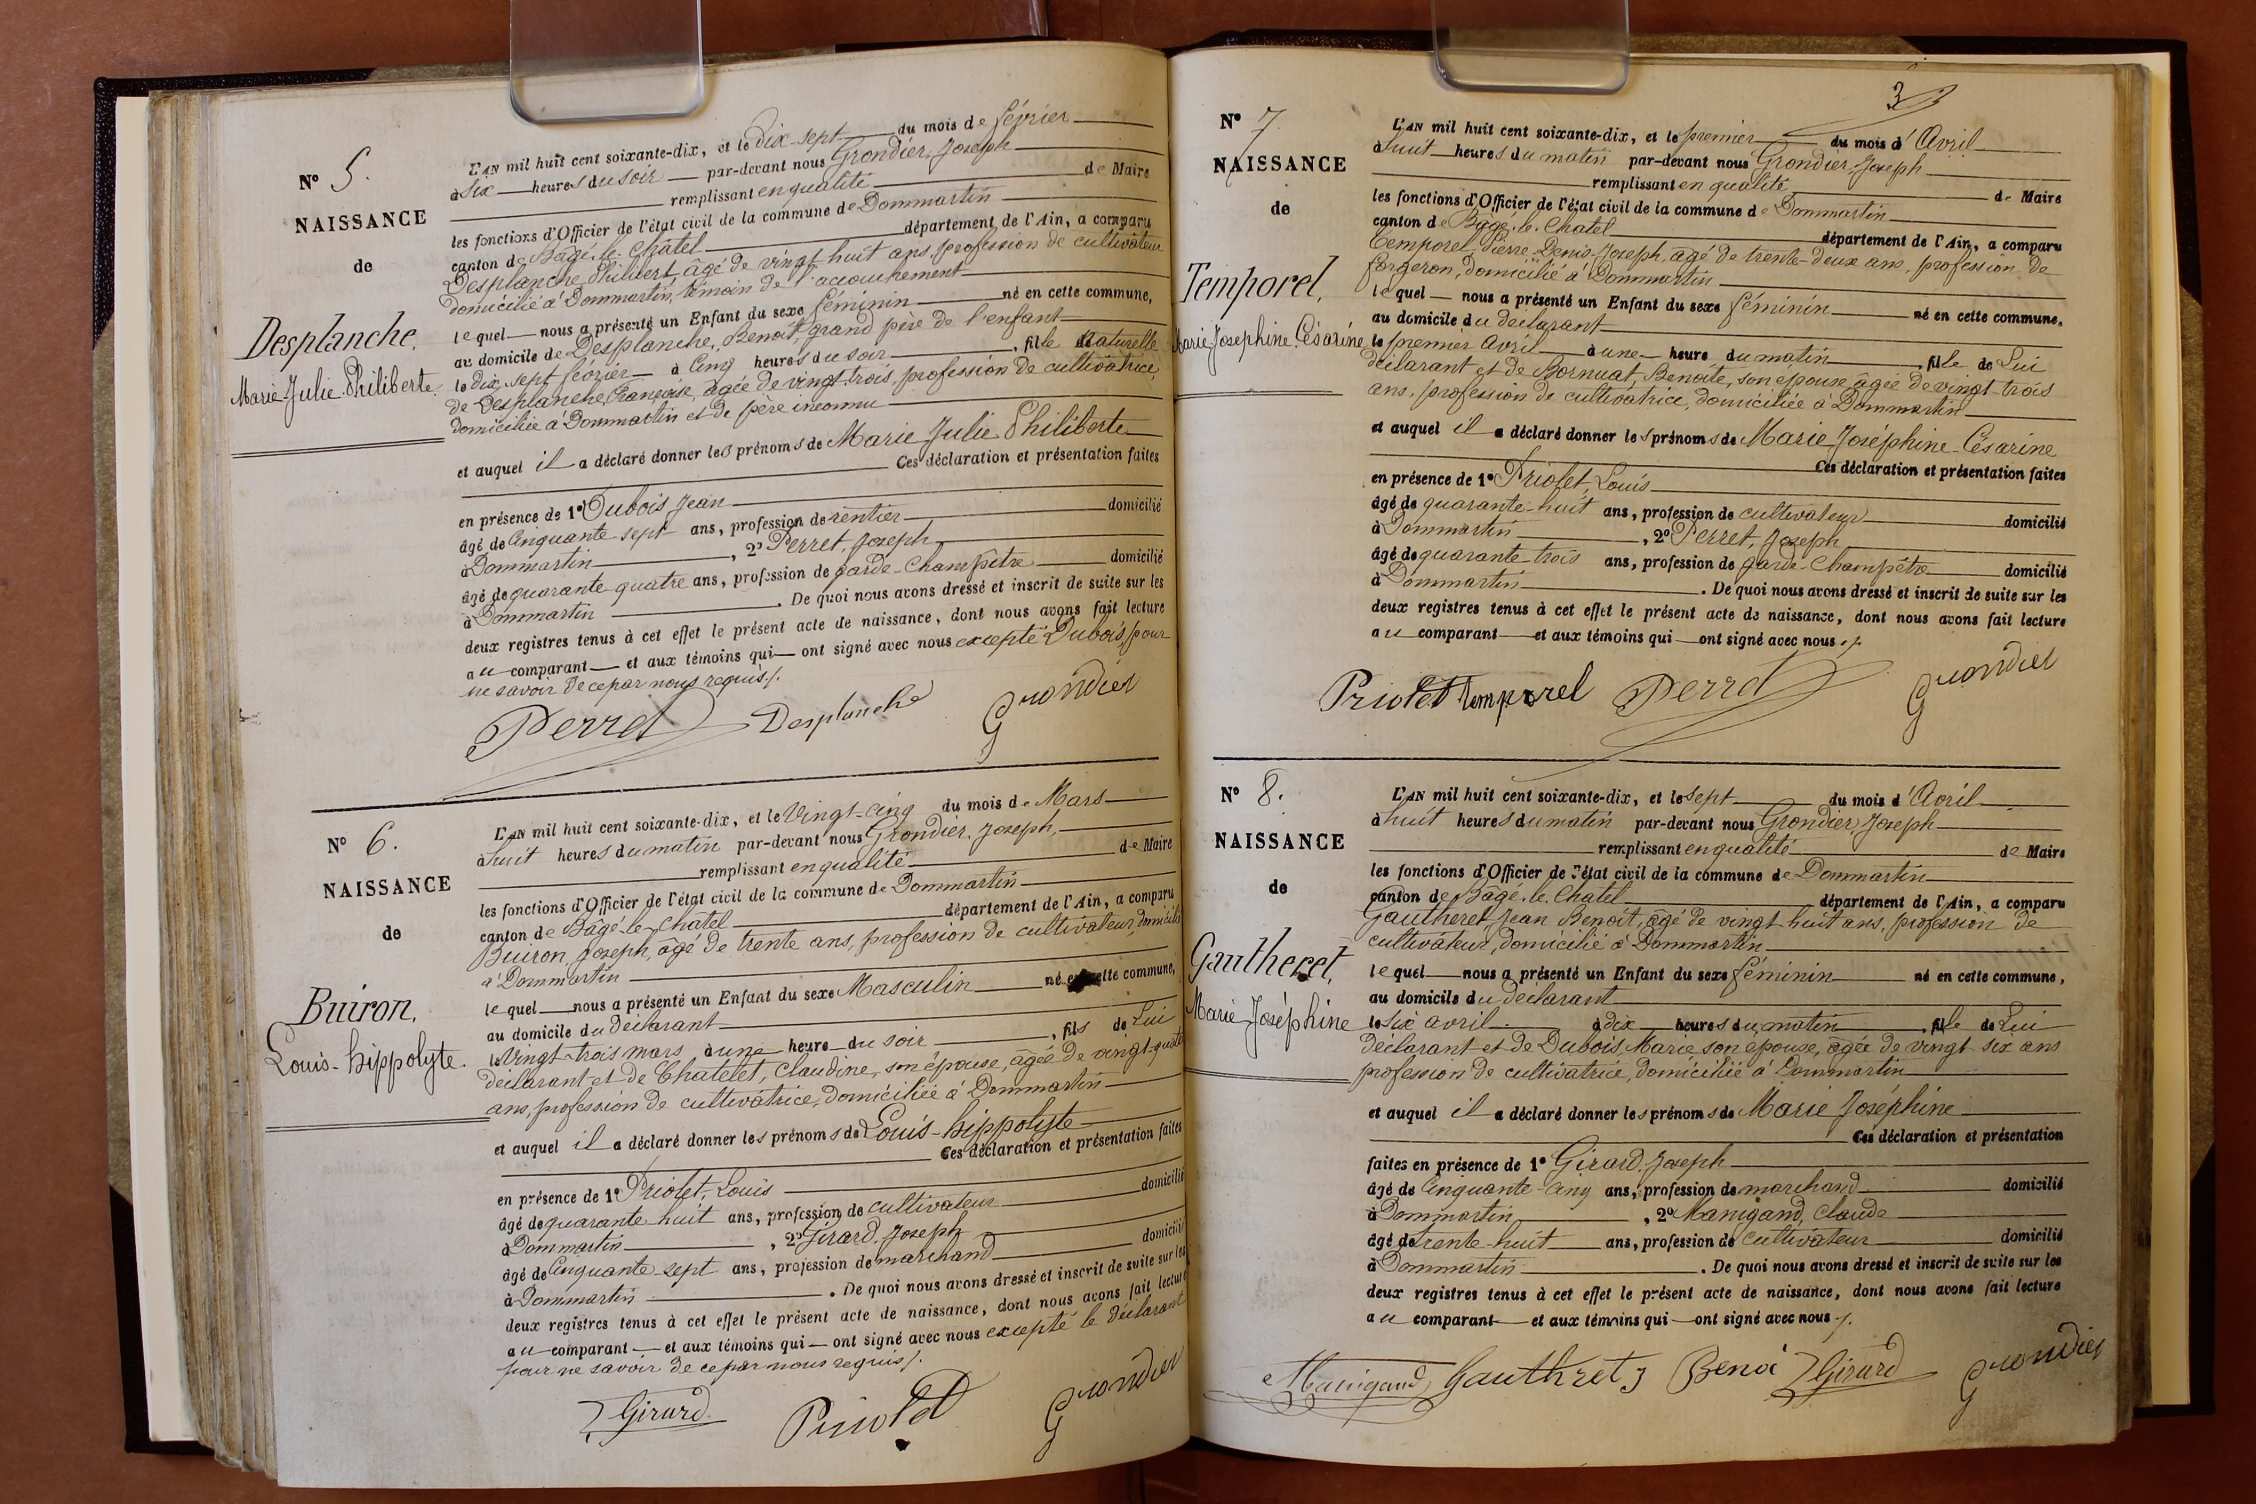 N° 5.
NAISSANCE
de
Desplanche,
Marie Julie Philiberte.
L'AN mil huit cent soixante-dix, et le Dix-sept du mois de février
à Six heures du soir par-devant nous Grondier, Joseph
remplissant en qualité de Maire
les fonctions d'Officier de l'état civil de la commune de Dommartin
canton de Bâgé-le-Châtel département de l'Ain, a comparu
Desplanche Philibert, âgé de vingt huit ans, profession de cultivateur
domicilié à Dommartin, témoin de l'accouchement
lequel nous a présenté un Enfant du sexe féminin né en cette commune,
au domicile de Desplanche, Benoît, grand père de l'enfant
le dix-sept février à Cinq heures du soir , fille Naturelle
de Desplanche Françoise, âgée de vingt-trois, profession de cultivatrice,
domiciliée à Dommartin et de père inconnu
et auquel il a déclaré donner les prénoms de Marie Julie Philiberte
Ces déclaration et présentation faites
en présence de 1° Dubois Jean
âgé de Cinquante sept ans, profession de rentier domicilié
à Dommartin , 2° Perret, Joseph
âgé de quarante quatre ans, profession de garde-Champêtre domicilié
à Dommartin . De quoi nous avons dressé et inscrit de suite sur les
deux registres tenus à cet effet le présent acte de naissance, dont nous avons fait lecture
au comparant et aux témoins qui ont signé avec nous excepté Dubois, pour
ne savoir de ce par nous requis /.
Perret Desplanche Grondier
N° 6.
NAISSANCE
de
Buiron,
Louis-hippolyte.
L'AN mil huit cent soixante-dix, et le Vingt-Cinq du mois de Mars
à huit heures du matin par-devant nous Grondier, Joseph,
remplissant en qualité de Maire
les fonctions d'Officier de l'état civil de la commune de Dommartin
canton de Bâgé-le-Châtel département de l'Ain, a comparu
Buiron, Joseph, âgé de trente ans, profession de cultivateur, domicilié
à Dommartin
lequel nous a présenté un Enfant du sexe Masculin né en cette commune,
au domicile du déclarant
le Vingt-trois mars à une heure du soir , fils de Lui
déclarant et de Chatelet, Claudine, son épouse, âgée de vingt-quatre
ans, profession de cultivatrice, domiciliée à Dommartin
et auquel il a déclaré donner les prénoms de Louis-hippolyte
Ces déclaration et présentation faites
en présence de 1° Priolet, Louis
âgé de quarante huit ans, profession de cultivateur domicilié
à Dommartin , 2° Girard, Joseph
âgé de Cinquante-sept ans, profession de marchand domicilié
à Dommartin . De quoi nous avons dressé et inscrit de suite sur les
deux registres tenus à cet effet le présent acte de naissance, dont nous avons fait lecture
au comparant et aux témoins qui ont signé avec nous excepté le déclarant
pour ne savoir de ce par nous requis /.
Girard Priolet Grondier
3
N° 7
NAISSANCE
de
Temporel,
Marie Josephine Césarine
L'AN mil huit cent soixante-dix, et le premier du mois d'Avril
à huit heures du matin par-devant nous Grondier, Joseph
remplissant en qualité de Maire
les fonctions d'Officier de l'état civil de la commune de Dommartin
canton de Bâgé-le-Chatel département de l'Ain, a comparu
Temporel Pierre-Denis-Joseph, âgé de trente-deux ans, profession de
forgeron, domicilié à Dommartin
lequel nous a présenté un Enfant du sexe féminin né en cette commune,
au domicile du déclarant
le premier Avril à une heure du matin , fille de Lui
déclarant et de Bornuat, Benoite, son épouse, âgée de vingt-trois
ans, profession de cultivatrice, domiciliée à Dommartin
et auquel il a déclaré donner les prénoms de Marie Joséphine-Césarine
Ces déclaration et présentation faites
en présence de 1° Priolet, Louis
âgé de quarante-huit ans, profession de cultivateur domicilié
à Dommartin , 2° Perret, Joseph
âgé de quarante trois ans, profession de garde-Champêtre domicilié
à Dommartin . De quoi nous avons dressé et inscrit de suite sur les
deux registres tenus à cet effet le présent acte de naissance, dont nous avons fait lecture
au comparant et aux témoins qui ont signé avec nous /.
Priolet temporel Perret Grondier
N° 8.
NAISSANCE
de
Gautheret,
Marie Joséphine
L'AN mil huit cent soixante-dix, et le sept du mois d'Avril
à huit heures du matin par-devant nous Grondier, Joseph
remplissant en qualité de Maire
les fonctions d'Officier de l'état civil de la commune de Dommartin
canton de Bâgé-le-Chatel département de l'Ain, a comparu
Gautheret, Jean Benoit, âgé de vingt huit ans, profession de
cultivateur, domicilié à Dommartin
lequel nous a présenté un Enfant du sexe féminin né en cette commune,
au domicile du déclarant
le six avril à dix heures du matin , fille de Lui
déclarant et de Dubois, Marie son épouse, âgée de vingt-six ans
profession de cultivatrice, domiciliée à Dommartin
et auquel il a déclaré donner les prénoms de Marie Joséphine
Ces déclaration et présentation
faites en présence de 1° Girard, Joseph
âgé de Cinquante-Cinq ans, profession de marchand domicilié
à Dommartin , 2° Manigand, Claude
âgé de trente-huit ans, profession de Cultivateur domicilié
à Dommartin . De quoi nous avons dressé et inscrit de suite sur les
deux registres tenus à cet effet le présent acte de naissance, dont nous avons fait lecture
au comparant et aux témoins qui ont signé avec nous /.
Manigand Gauthret j Benoi Girard Grondier